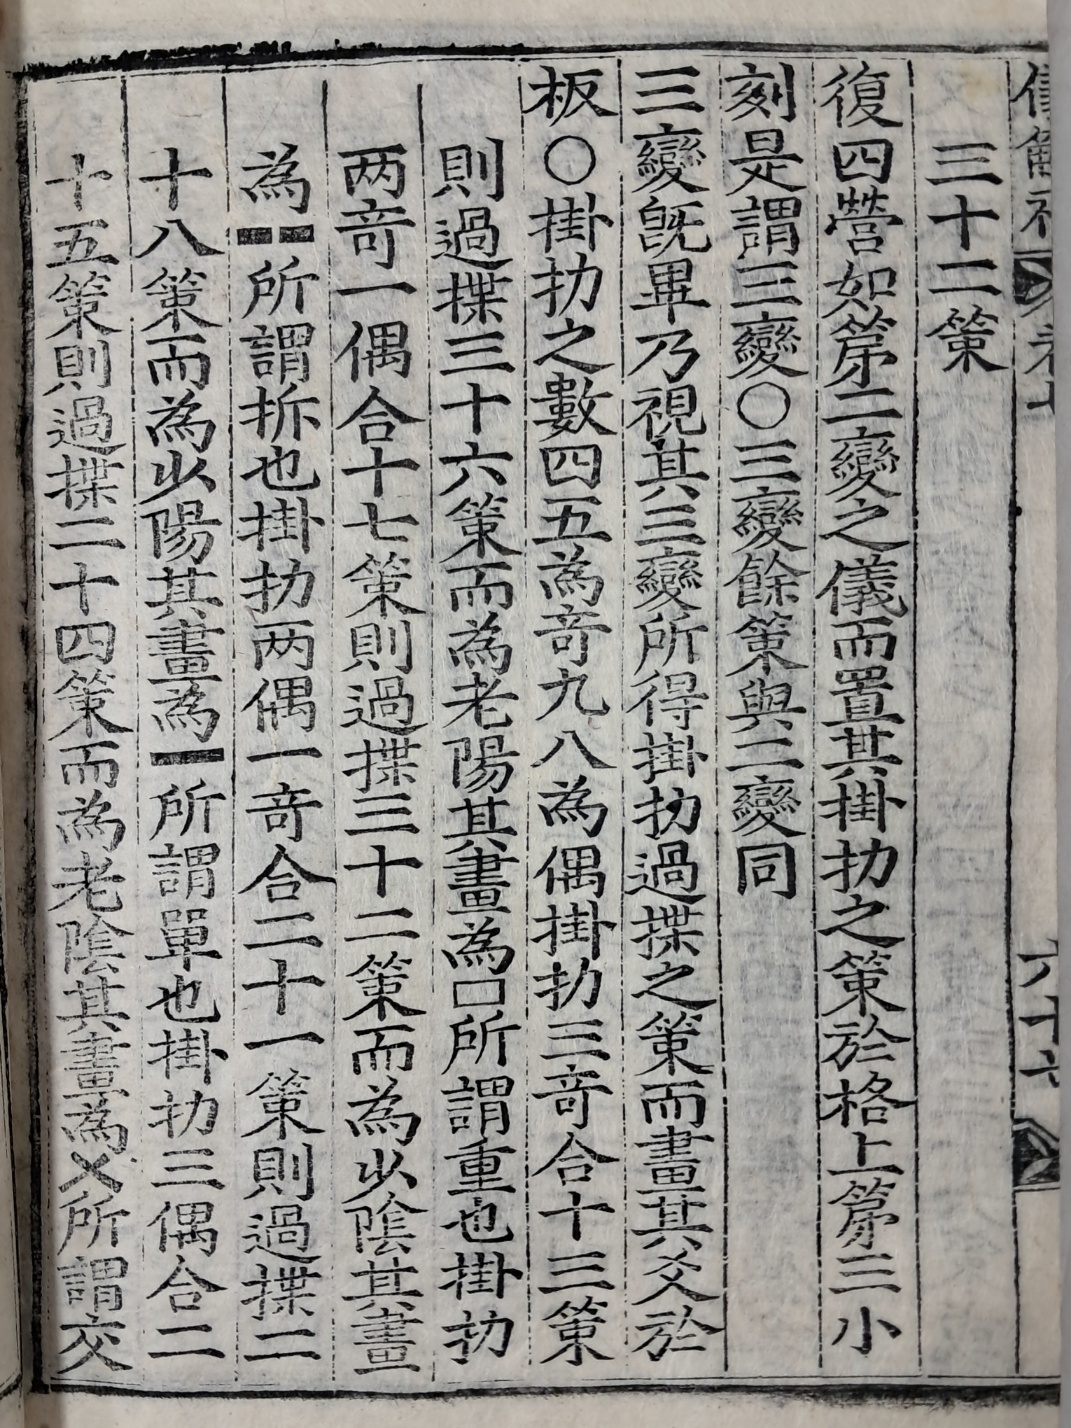 三十二策
復四營如第二變之儀而置其掛扐之策於格上第三小
刻是謂三變○三變餘策與二變同
三變旣畢乃視其三變所得掛扐過揲之策而畫其爻於
板○掛扐之數四五為竒九八為偶掛扐三竒合十三策
則過揲三十六策而為老陽其畫為口所謂重也掛扐
两竒一偶合十七策則過揲三十二策而為少陰其畫
為⚋所謂拆也掛扐两偶一竒合二十一策則過揲二
十八策而為少陽其畫為⚊所謂單也掛扐三偶合二
十五策則過揲二十四策而為老陰其畫為乂所謂交